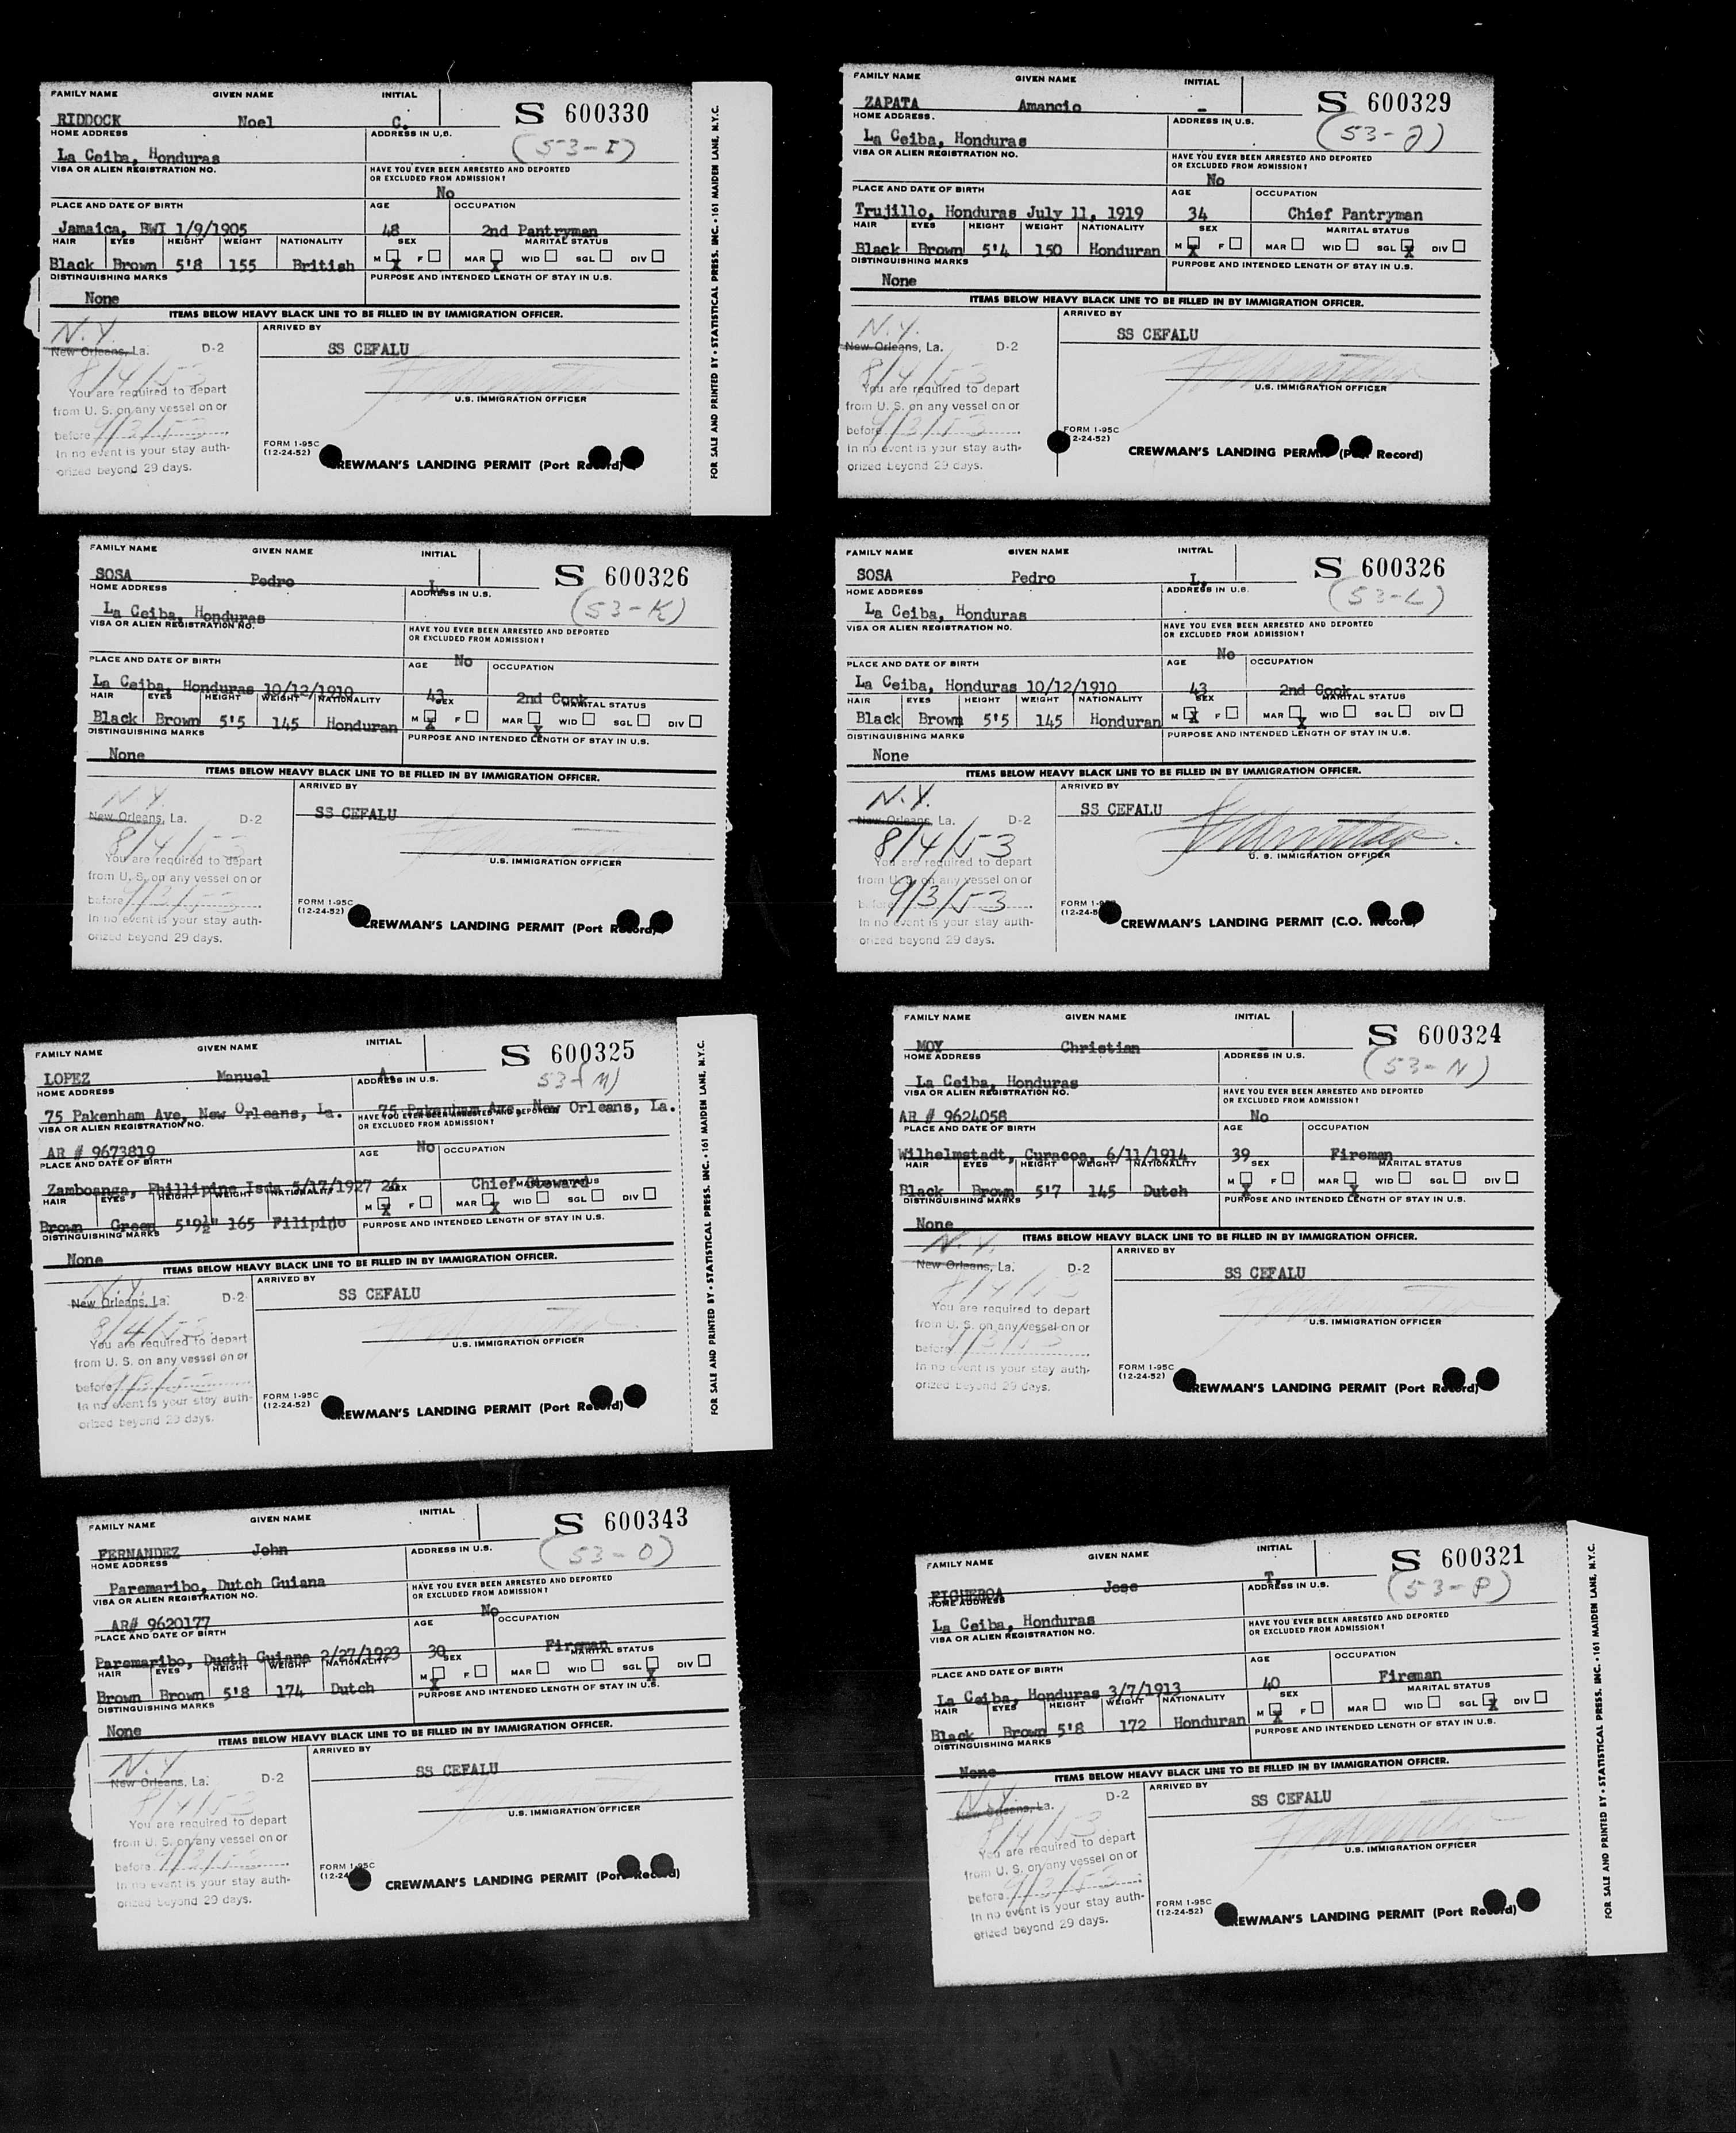 FAMILY NAME GIVEN NAME INITIAL
S 600330
RIDDOCK Noel C.
(53-I)
HOME ADDRESS ADDRESS IN U.S.
La Ceiba, Honduras
VISA OR ALIEN REGISTRATION NO. HAVE YOU EVER BEEN ARRESTED AND DEPORTED
OR EXCLUDED FROM ADMISSION?
No
PLACE AND DATE OF BIRTH AGE OCCUPATION
Jamaica, BWI 1/9/1905 48 2nd Pantryman
HAIR EYES HEIGHT WEIGHT NATIONALITY SEX MARITAL STATUS
Black Brown 5'8 155 British M X F MAR X WID SGL DIV
DISTINGUISHING MARKS PURPOSE AND INTENDED LENGTH OF STAY IN U.S.
None
ITEMS BELOW HEAVY BLACK LINE TO BE FILLED IN BY IMMIGRATION OFFICER.
N.Y.
ARRIVED BY
New Orleans, La. D-2 SS CEFALU
8/4/53
You are required to depart
U.S. IMMIGRATION OFFICER
from U. S. on any vessel on or
before 9/3/53
In no event is your stay auth-
orized beyond 29 days.
FORM 1-95C
(12-24-52)
CREWMAN'S LANDING PERMIT (Port Record)
FOR SALE AND PRINTED BY • STATISTICAL PRESS. INC. • 161 MAIDEN LANE, N.Y.C.
FAMILY NAME GIVEN NAME INITIAL
S 600329
ZAPATA Amancio -
(53-J)
HOME ADDRESS. ADDRESS IN U.S.
La Ceiba, Honduras
VISA OR ALIEN REGISTRATION NO. HAVE YOU EVER BEEN ARRESTED AND DEPORTED
OR EXCLUDED FROM ADMISSION?
No
PLACE AND DATE OF BIRTH AGE OCCUPATION
Trujillo, Honduras July 11, 1919 34 Chief Pantryman
HAIR EYES HEIGHT WEIGHT NATIONALITY SEX MARITAL STATUS
Black Brown 5'4 150 Honduran M X F MAR WID SGL X DIV
DISTINGUISHING MARKS PURPOSE AND INTENDED LENGTH OF STAY IN U.S.
None
ITEMS BELOW HEAVY BLACK LINE TO BE FILLED IN BY IMMIGRATION OFFICER.
N.Y.
ARRIVED BY
New Orleans, La. D-2 SS CEFALU
8/4/53
You are required to depart
U.S. IMMIGRATION OFFICER
from U. S. on any vessel on or
before 9/3/53
In no event is your stay auth-
orized beyond 29 days.
FORM 1-95C
12-24-52)
CREWMAN'S LANDING PERMIT (Port Record)
FAMILY NAME GIVEN NAME INITIAL
S 600326
SOSA Pedro L.
(53-K)
HOME ADDRESS ADDRESS IN U.S.
La Ceiba, Honduras
VISA OR ALIEN REGISTRATION NO. HAVE YOU EVER BEEN ARRESTED AND DEPORTED
OR EXCLUDED FROM ADMISSION?
No
PLACE AND DATE OF BIRTH AGE OCCUPATION
La Ceiba, Honduras 10/12/1910 43 2nd Cook
HAIR EYES HEIGHT WEIGHT NATIONALITY SEX MARITAL STATUS
Black Brown 5'5 145 Honduran M X F MAR X WID SGL DIV
DISTINGUISHING MARKS PURPOSE AND INTENDED LENGTH OF STAY IN U.S.
None
ITEMS BELOW HEAVY BLACK LINE TO BE FILLED IN BY IMMIGRATION OFFICER.
N.Y.
ARRIVED BY
New Orleans, La. D-2 SS CEFALU
8/4/53
You are required to depart
U.S. IMMIGRATION OFFICER
from U. S. on any vessel on or
before 9/3/53
In no event is your stay auth-
orized beyond 29 days.
FORM 1-95C
(12-24-52)
CREWMAN'S LANDING PERMIT (Port Record)
FAMILY NAME GIVEN NAME INITIAL
S 600326
SOSA Pedro L.
(53-L)
HOME ADDRESS ADDRESS IN U.S.
La Ceiba, Honduras
VISA OR ALIEN REGISTRATION NO. HAVE YOU EVER BEEN ARRESTED AND DEPORTED
OR EXCLUDED FROM ADMISSION?
No
PLACE AND DATE OF BIRTH AGE OCCUPATION
La Ceiba, Honduras 10/12/1910 43 2nd Cook
HAIR EYES HEIGHT WEIGHT NATIONALITY SEX MARITAL STATUS
Black Brown 5'5 145 Honduran M X F MAR X WID SGL DIV
DISTINGUISHING MARKS PURPOSE AND INTENDED LENGTH OF STAY IN U.S.
None
ITEMS BELOW HEAVY BLACK LINE TO BE FILLED IN BY IMMIGRATION OFFICER.
N.Y.
ARRIVED BY
New Orleans, La. D-2 SS CEFALU
8/4/53
You are required to depart
U. S. IMMIGRATION OFFICER
from U. S. on any vessel on or
before 9/3/53
In no event is your stay auth-
orized beyond 29 days.
FORM 1-95C
(12-24-5
CREWMAN'S LANDING PERMIT (C.O. Record)
FAMILY NAME GIVEN NAME INITIAL
S 600325
LOPEZ Manuel A.
53-M)
HOME ADDRESS ADDRESS IN U.S.
75 Pakenham Ave, New Orleans, La. 75 Pakenham Ave, New Orleans, La.
VISA OR ALIEN REGISTRATION NO. HAVE YOU EVER BEEN ARRESTED AND DEPORTED
OR EXCLUDED FROM ADMISSION?
AR # 9673819 No
PLACE AND DATE OF BIRTH AGE OCCUPATION
Zamboanga, Phillipine Isds 5/17/1927 26 Chief Steward
HAIR EYES HEIGHT WEIGHT NATIONALITY SEX MARITAL STATUS
Brown Green 5'9½" 165 Filipino M X F MAR X WID SGL DIV
DISTINGUISHING MARKS PURPOSE AND INTENDED LENGTH OF STAY IN U.S.
None
ITEMS BELOW HEAVY BLACK LINE TO BE FILLED IN BY IMMIGRATION OFFICER.
N.Y.
ARRIVED BY
New Orleans, La. D-2 SS CEFALU
8/4/53
You are required to depart
U.S. IMMIGRATION OFFICER
from U. S. on any vessel on or
before 9/3/53
In no event is your stay auth-
orized beyond 29 days.
FORM 1-95C
(12-24-52)
CREWMAN'S LANDING PERMIT (Port Record)
FOR SALE AND PRINTED BY • STATISTICAL PRESS. INC. • 161 MAIDEN LANE, N.Y.C.
FAMILY NAME GIVEN NAME INITIAL
S 600324
MOY Christian
(53-N)
HOME ADDRESS ADDRESS IN U.S.
La Ceiba, Honduras
VISA OR ALIEN REGISTRATION NO. HAVE YOU EVER BEEN ARRESTED AND DEPORTED
OR EXCLUDED FROM ADMISSION?
AR # 9624058 No
PLACE AND DATE OF BIRTH AGE OCCUPATION
Wilhelmstadt, Curacoa, 6/11/1914 39 Fireman
HAIR EYES HEIGHT WEIGHT NATIONALITY SEX MARITAL STATUS
Black Brown 5'7 145 Dutch M X F MAR X WID SGL DIV
DISTINGUISHING MARKS PURPOSE AND INTENDED LENGTH OF STAY IN U.S.
None
ITEMS BELOW HEAVY BLACK LINE TO BE FILLED IN BY IMMIGRATION OFFICER.
N.Y.
ARRIVED BY
New Orleans, La. D-2 SS CEFALU
8/4/53
You are required to depart
U.S. IMMIGRATION OFFICER
from U. S. on any vessel on or
before 9/3/53
In no event is your stay auth-
orized beyond 29 days.
FORM 1-95C
(12-24-52)
CREWMAN'S LANDING PERMIT (Port Record)
FAMILY NAME GIVEN NAME INITIAL
S 600343
FERNANDEZ John
(53-O)
HOME ADDRESS ADDRESS IN U.S.
Paremaribo, Dutch Guiana
VISA OR ALIEN REGISTRATION NO. HAVE YOU EVER BEEN ARRESTED AND DEPORTED
OR EXCLUDED FROM ADMISSION?
AR# 9620177 No
PLACE AND DATE OF BIRTH AGE OCCUPATION
Paremaribo, Ducth Guiana 2/27/1923 30 Fireman
HAIR EYES HEIGHT WEIGHT NATIONALITY SEX MARITAL STATUS
Brown Brown 5'8 174 Dutch M X F MAR WID SGL X DIV
DISTINGUISHING MARKS PURPOSE AND INTENDED LENGTH OF STAY IN U.S.
None
ITEMS BELOW HEAVY BLACK LINE TO BE FILLED IN BY IMMIGRATION OFFICER.
N.Y
ARRIVED BY
New Orleans, La. D-2 SS CEFALU
8/4/53
You are required to depart
U.S. IMMIGRATION OFFICER
from U. S. on any vessel on or
before 9/3/53
In no event is your stay auth-
orized beyond 29 days.
FORM 1-95C
(12-24
CREWMAN'S LANDING PERMIT (Port Record)
FAMILY NAME GIVEN NAME INITIAL
S 600321
FIGUEROA Jose T.
(53-P)
HOME ADDRESS ADDRESS IN U.S.
La Ceiba, Honduras
VISA OR ALIEN REGISTRATION NO. HAVE YOU EVER BEEN ARRESTED AND DEPORTED
OR EXCLUDED FROM ADMISSION?
PLACE AND DATE OF BIRTH AGE OCCUPATION
La Ceiba, Honduras 3/7/1913 40 Fireman
HAIR EYES HEIGHT WEIGHT NATIONALITY SEX MARITAL STATUS
Black Brown 5'8 172 Honduran M X F MAR WID SGL X DIV
DISTINGUISHING MARKS PURPOSE AND INTENDED LENGTH OF STAY IN U.S.
None
ITEMS BELOW HEAVY BLACK LINE TO BE FILLED IN BY IMMIGRATION OFFICER.
N.Y.
ARRIVED BY
New Orleans, La. D-2 SS CEFALU
8/4/53
You are required to depart
U.S. IMMIGRATION OFFICER
from U. S. on any vessel on or
before 9/3/53
In no event is your stay auth-
orized beyond 29 days.
FORM 1-95C
(12-24-52)
CREWMAN'S LANDING PERMIT (Port Record)
FOR SALE AND PRINTED BY • STATISTICAL PRESS. INC. • 161 MAIDEN LANE, N.Y.C.